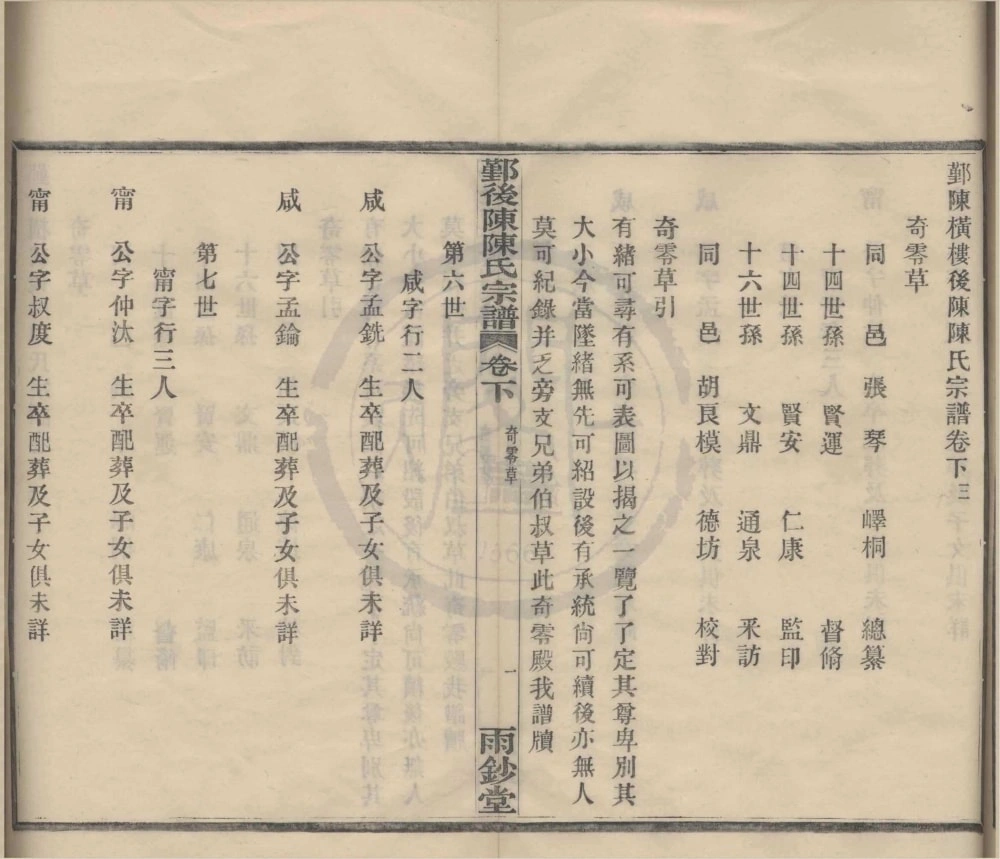 鄞陳橫樓後陳陳氏宗譜卷下三
奇零草
同邑 張琴 嶧桐 總纂
十四世孫 賢運 督脩
十四世孫 賢安 仁康 監印
十六世孫 文鼎 通泉 采訪
同邑 胡良模 德坊 校對
奇零草引
有緒可尋有系可表圖以揭之一覽了了定其尊卑別其
大小今當墜緒無先可紹設後有承統尙可續後亦無人
莫可紀錄并乏旁支兄弟伯叔草此奇零殿我譜牘
鄞後陳陳氏宗譜 卷下 奇零草 一 雨鈔堂
第六世
咸字行二人
咸 公字孟銑 生卒配葬及子女俱未詳
咸 公字孟錀 生卒配葬及子女俱未詳
第七世
甯字行三人
甯 公字仲汰 生卒配葬及子女俱未詳
甯 公字叔度 生卒配葬及子女俱未詳